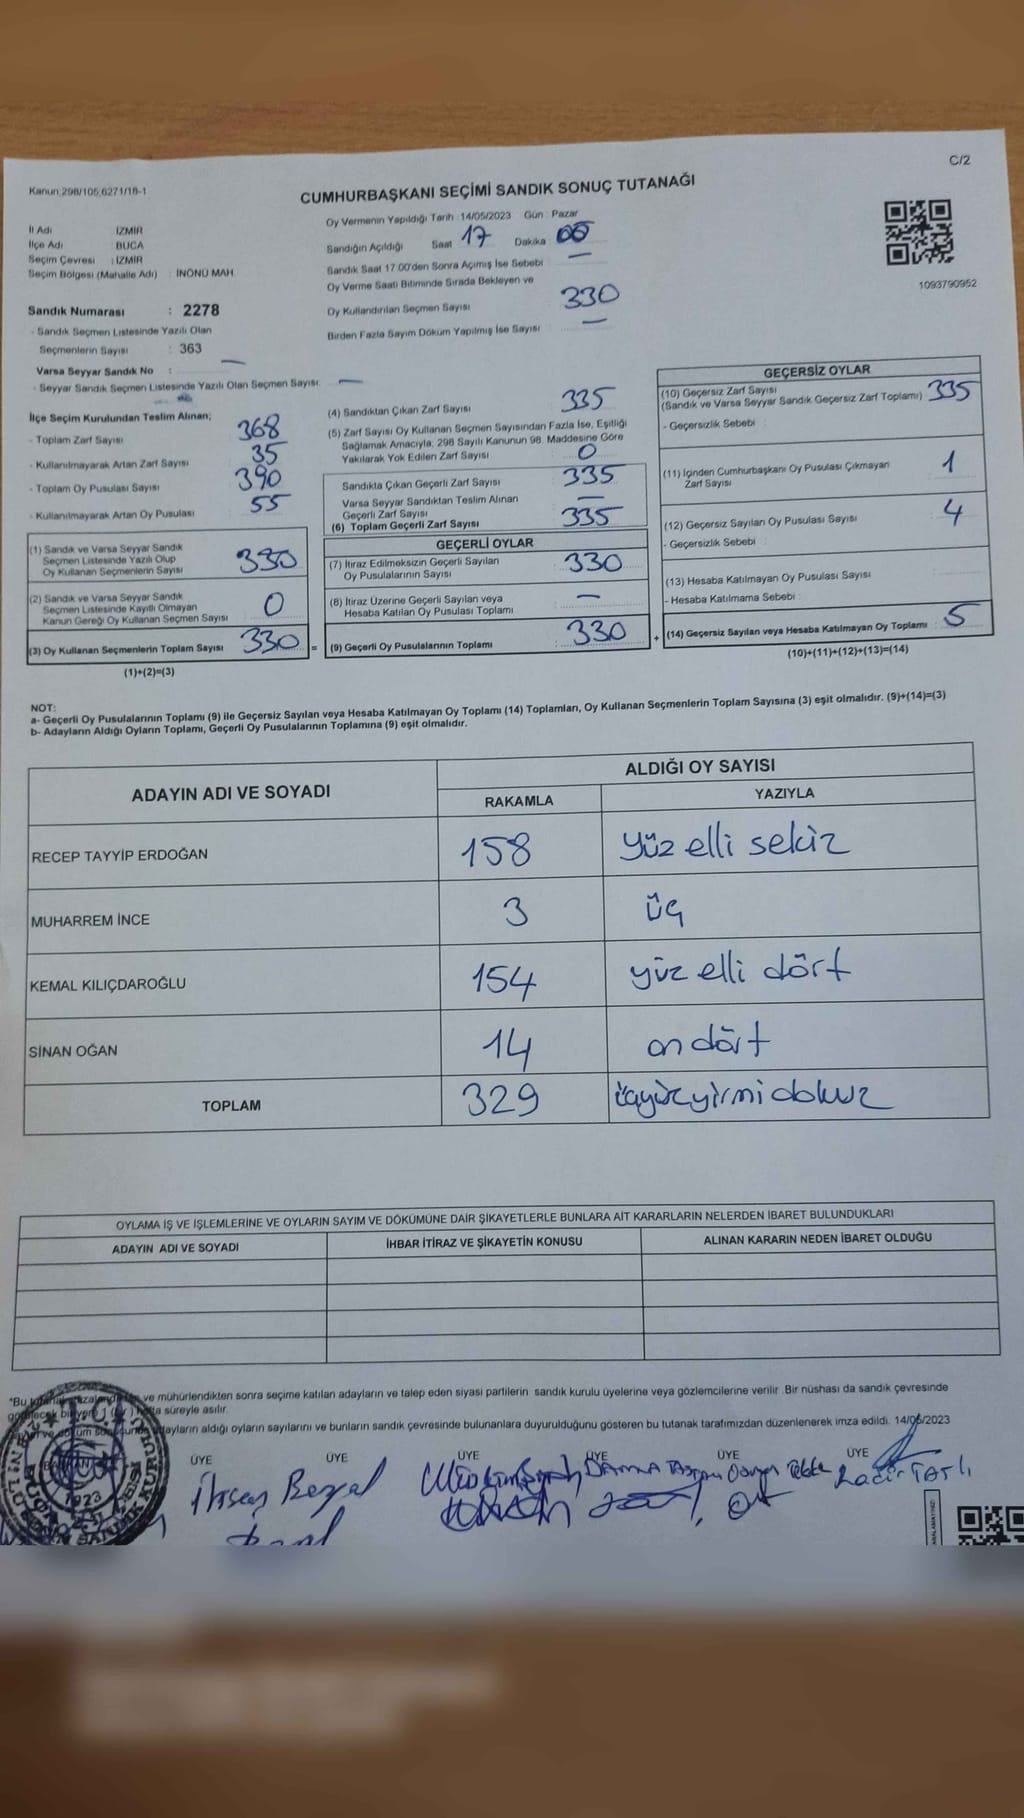 C/2
Kanun:298/105,6271/18-1
CUMHURBAŞKANI SEÇİMİ SANDIK SONUÇ TUTANAĞI
İl Adı : İZMİR
İlçe Adı : BUCA
Seçim Çevresi : İZMİR
Seçim Bölgesi (Mahalle Adı) : İNÖNÜ MAH.
Sandık Numarası : 2278
- Sandık Seçmen Listesinde Yazılı Olan
Seçmenlerin Sayısı : 363
Varsa Seyyar Sandık No : —
- Seyyar Sandık Seçmen Listesinde Yazılı Olan Seçmen Sayısı: —
Oy Vermenin Yapıldığı Tarih : 14/05/2023 Gün : Pazar
Sandığın Açıldığı Saat 17 Dakika : 00
Sandık Saat 17:00'den Sonra Açımış İse Sebebi : —
Oy Verme Saati Bitiminde Sırada Bekleyen ve
Oy Kullandırılan Seçmen Sayısı : 330
Birden Fazla Sayım Döküm Yapılmış İse Sayısı : —
1093790952
İlçe Seçim Kurulundan Teslim Alınan;
- Toplam Zarf Sayısı : 368
- Kullanılmayarak Artan Zarf Sayısı : 35
- Toplam Oy Pusulası Sayısı : 390
- Kullanılmayarak Artan Oy Pusulası : 55
(1) Sandık ve Varsa Seyyar Sandık
Seçmen Listesinde Yazılı Olup
Oy Kullanan Seçmenlerin Sayısı : 330
(2) Sandık ve Varsa Seyyar Sandık
Seçmen Listesinde Kayıtlı Olmayan
Kanun Gereği Oy Kullanan Seçmen Sayısı : 0
(3) Oy Kullanan Seçmenlerin Toplam Sayısı : 330 =
(1)+(2)=(3)
(4) Sandıktan Çıkan Zarf Sayısı : 335
(5) Zarf Sayısı Oy Kullanan Seçmen Sayısından Fazla İse, Eşitliği
Sağlamak Amacıyla, 298 Sayılı Kanunun 98. Maddesine Göre
Yakılarak Yok Edilen Zarf Sayısı : 0
Sandıkta Çıkan Geçerli Zarf Sayısı : 335
Varsa Seyyar Sandıktan Teslim Alınan
Geçerli Zarf Sayısı : —
(6) Toplam Geçerli Zarf Sayısı : 335
GEÇERLİ OYLAR
(7) İtiraz Edilmeksizin Geçerli Sayılan
Oy Pusulalarının Sayısı : 330
(8) İtiraz Üzerine Geçerli Sayılan veya
Hesaba Katılan Oy Pusulası Toplamı : —
(9) Geçerli Oy Pusulalarının Toplamı : 330 +
GEÇERSİZ OYLAR
(10) Geçersiz Zarf Sayısı
(Sandık ve Varsa Seyyar Sandık Geçersiz Zarf Toplamı) : 335
- Geçersizlik Sebebi :
(11) İçinden Cumhurbaşkanı Oy Pusulası Çıkmayan
Zarf Sayısı : 1
(12) Geçersiz Sayılan Oy Pusulası Sayısı : 4
- Geçersizlik Sebebi :
(13) Hesaba Katılmayan Oy Pusulası Sayısı :
- Hesaba Katılmama Sebebi :
(14) Geçersiz Sayılan veya Hesaba Katılmayan Oy Toplamı : 5
(10)+(11)+(12)+(13)=(14)
NOT:
a- Geçerli Oy Pusulalarının Toplamı (9) ile Geçersiz Sayılan veya Hesaba Katılmayan Oy Toplamı (14) Toplamları, Oy Kullanan Seçmenlerin Toplam Sayısına (3) eşit olmalıdır. (9)+(14)=(3)
b- Adayların Aldığı Oyların Toplamı, Geçerli Oy Pusulalarının Toplamına (9) eşit olmalıdır.
ADAYIN ADI VE SOYADI
ALDIĞI OY SAYISI
RAKAMLA YAZIYLA
RECEP TAYYİP ERDOĞAN 158 yüz elli sekiz
MUHARREM İNCE 3 üç
KEMAL KILIÇDAROĞLU 154 yüz elli dört
SİNAN OĞAN 14 on dört
TOPLAM 329 üçyüzyirmi dokuz
OYLAMA İŞ VE İŞLEMLERİNE VE OYLARIN SAYIM VE DÖKÜMÜNE DAİR ŞİKAYETLERLE BUNLARA AİT KARARLARIN NELERDEN İBARET BULUNDUKLARI
ADAYIN ADI VE SOYADI İHBAR İTİRAZ VE ŞİKAYETİN KONUSU ALINAN KARARIN NEDEN İBARET OLDUĞU
*Bu ve mühürlendikten sonra seçime katılan adayların ve talep eden siyasi partilerin sandık kurulu üyelerine veya gözlemcilerine verilir. Bir nüshası da sandık çevresinde
süreyle asılır.
adayların aldığı oyların sayılarını ve bunların sandık çevresinde bulunanlara duyurulduğunu gösteren bu tutanak tarafımızdan düzenlenerek imza edildi. 14/05/2023
ÜYE ÜYE ÜYE ÜYE ÜYE ÜYE
1923